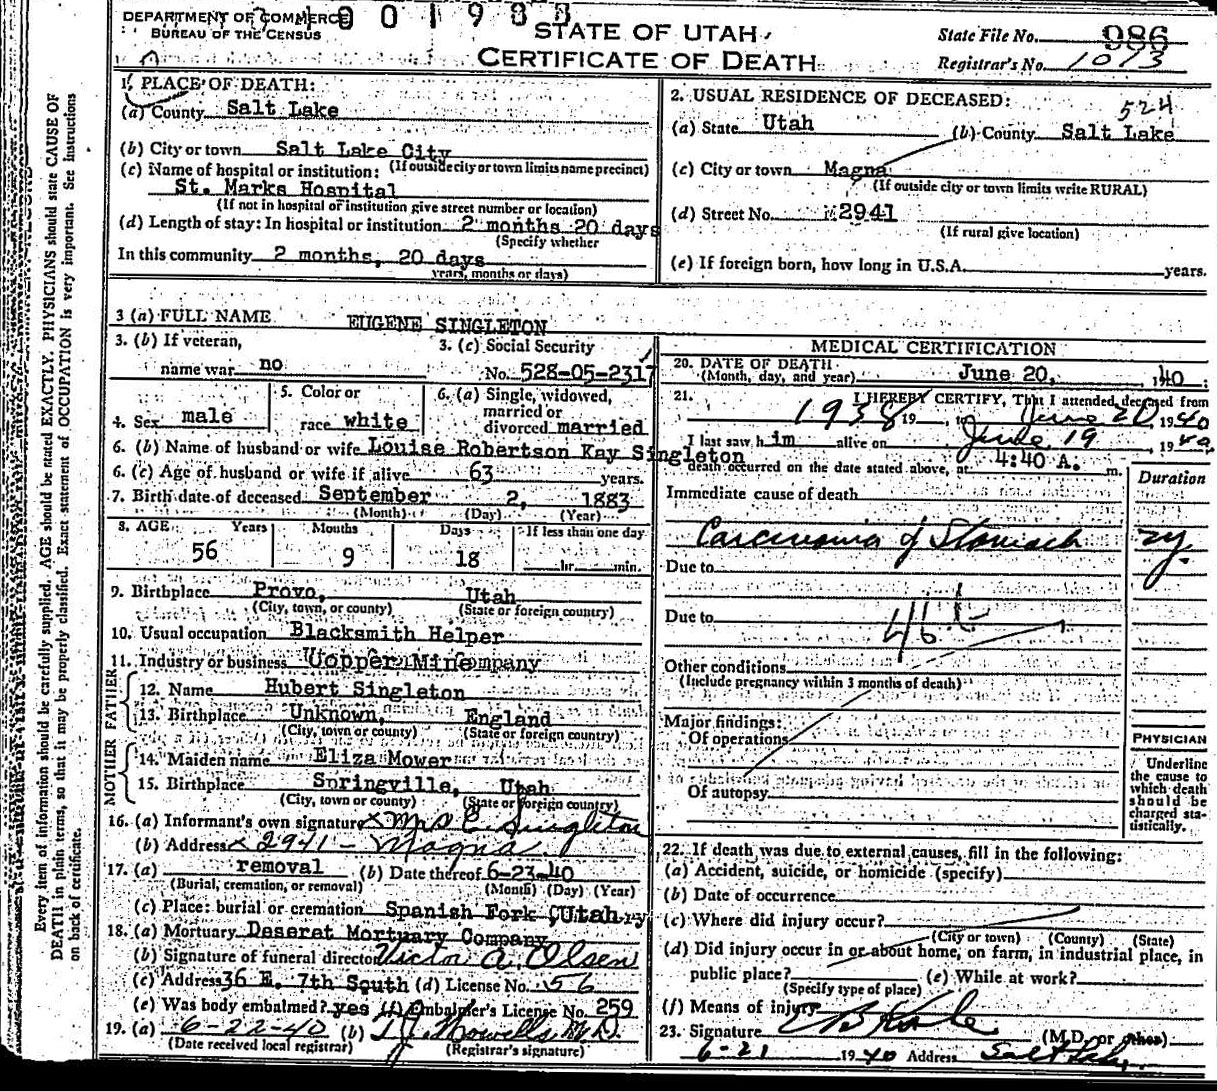 DEPARTMENT OF COMMERCE
BUREAU OF THE CENSUS
STATE OF UTAH
CERTIFICATE OF DEATH
State File No. 986
Registrar's No. 1013
1. PLACE OF DEATH:
(a) County Salt Lake
(b) City or town Salt Lake City
(If outside city or town limits name precinct)
(c) Name of hospital or institution:
St. Marks Hospital
(If not in hospital or institution give street number or location)
(d) Length of stay: In hospital or institution 2 months 20 days
(Specify whether
In this community 2 months, 20 days
years, months or days)
2. USUAL RESIDENCE OF DECEASED:
524
(a) State Utah (b) County Salt Lake
(c) City or town Magna
(If outside city or town limits write RURAL)
(d) Street No. 2941
(If rural give location)
(e) If foreign born, how long in U.S.A. years.
3 (a) FULL NAME EUGENE SINGLETON
3. (b) If veteran,
name war no
3. (c) Social Security
No. 528-05-2317
4. Sex male
5. Color or
race white
6. (a) Single, widowed,
married or
divorced married
6. (b) Name of husband or wife Louise Robertson Kay Singleton
6. (c) Age of husband or wife if alive 63 years.
7. Birth date of deceased September 2, 1883
(Month) (Day) (Year)
8. AGE Years Months Days If less than one day
56 9 18 hr. min.
9. Birthplace Provo, Utah
(City, town, or county) (State or foreign country)
10. Usual occupation Blacksmith Helper
11. Industry or business Copper Min Company
FATHER
12. Name Hubert Singleton
13. Birthplace Unknown, England
(City, town or county) (State or foreign country)
MOTHER
14. Maiden name Eliza Mower
15. Birthplace Springville, Utah
(City, town or county) (State or foreign country)
16. (a) Informant's own signature x Mrs E. Singleton
(b) Address x 2941 - Magna
17. (a) removal (b) Date thereof 6-23-40
(Burial, cremation, or removal) (Month) (Day) (Year)
(c) Place: burial or cremation Spanish Fork, Utah
18. (a) Mortuary Deseret Mortuary Company
(b) Signature of funeral director Victor A. Olsen
(c) Address 36 E. 7th South (d) License No. 56
(e) Was body embalmed? yes (f) Embalmer's License No. 259
19. (a) 6-22-40 (b) T J Howells M.D.
(Date received local registrar) (Registrar's signature)
MEDICAL CERTIFICATION
20. DATE OF DEATH
(Month, day, and year) June 20, 1940
21. I HEREBY CERTIFY, That I attended deceased from
1938 19 , to June 20 1940
I last saw him alive on June 19 1940
death occurred on the date stated above, at 4:40 A. m.
Duration
Immediate cause of death
Carcinoma of Stomach 2y.
Due to
Due to
46 b
Other conditions
(Include pregnancy within 3 months of death)
Major findings:
Of operations
Of autopsy
PHYSICIAN
Underline
the cause to
which death
should be
charged sta-
tistically.
22. If death was due to external causes, fill in the following:
(a) Accident, suicide, or homicide (specify)
(b) Date of occurrence
(c) Where did injury occur?
(City or town) (County) (State)
(d) Did injury occur in or about home, on farm, in industrial place, in
public place? (e) While at work?
(Specify type of place)
(f) Means of injury
23. Signature (M.D. or other)
6-21 1940 Address Salt Lake
Every item of information should be carefully supplied. AGE should be stated EXACTLY. PHYSICIANS should state CAUSE OF
DEATH in plain terms, so that it may be properly classified. Exact statement of OCCUPATION is very important. See instructions
on back of certificate.